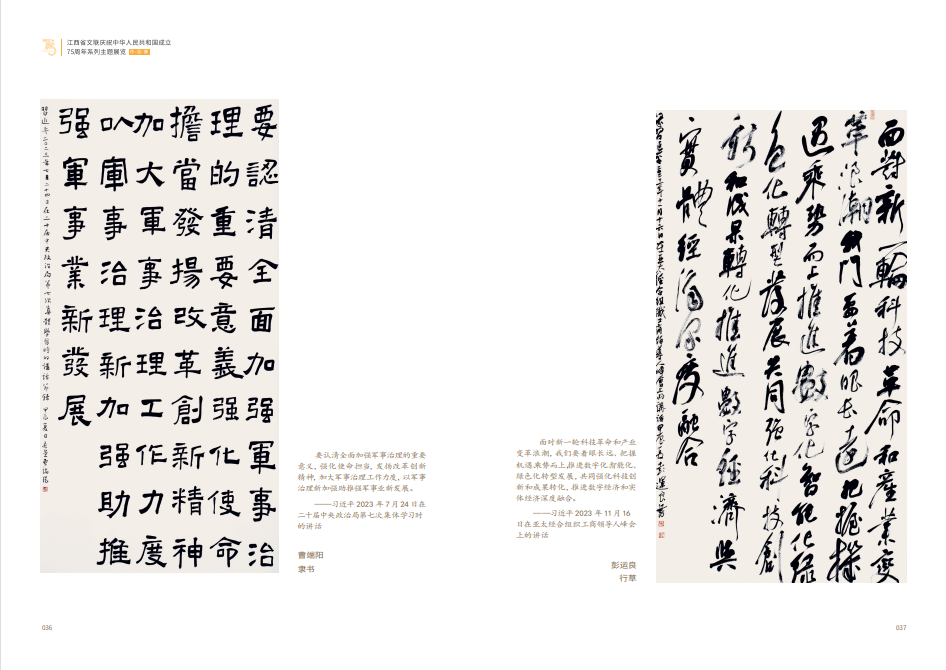 江西省文联庆祝中华人民共和国成立
75周年系列主题展览
要認清全面加强軍事治
理的重要意義强化使命
擔當發揚改革創新精神
加大軍事治理工作力度
以軍事治理新加强助推
强軍事業新發展
習近平二〇二三年七月二十四日在二十届中央政治局第七次集體學習時的講話節錄
要认清全面加强军事治理的重要
意义,强化使命担当,发扬改革创新
精神,加大军事治理工作力度,以军事
治理新加强助推强军事业新发展。
——习近平 2023 年 7 月 24 日在
二十届中央政治局第七次集体学习时
的讲话
曹端阳
隶书
036
面對新一輪科技革命和產業變
革浪潮我們要着眼長遠把握機
遇乘勢而上推進數字化智能化緑
色化轉型發展共同强化科技創
新和成果轉化推進數字經濟與
實體經濟深度融合
面对新一轮科技革命和产业
变革浪潮,我们要着眼长远、把握
机遇、乘势而上,推进数字化、智能化、
绿色化转型发展,共同强化科技创
新和成果转化,推进数字经济和实
体经济深度融合。
——习近平 2023 年 11 月 16
日在亚太经合组织工商领导人峰会
上的讲话
彭运良
行草
037